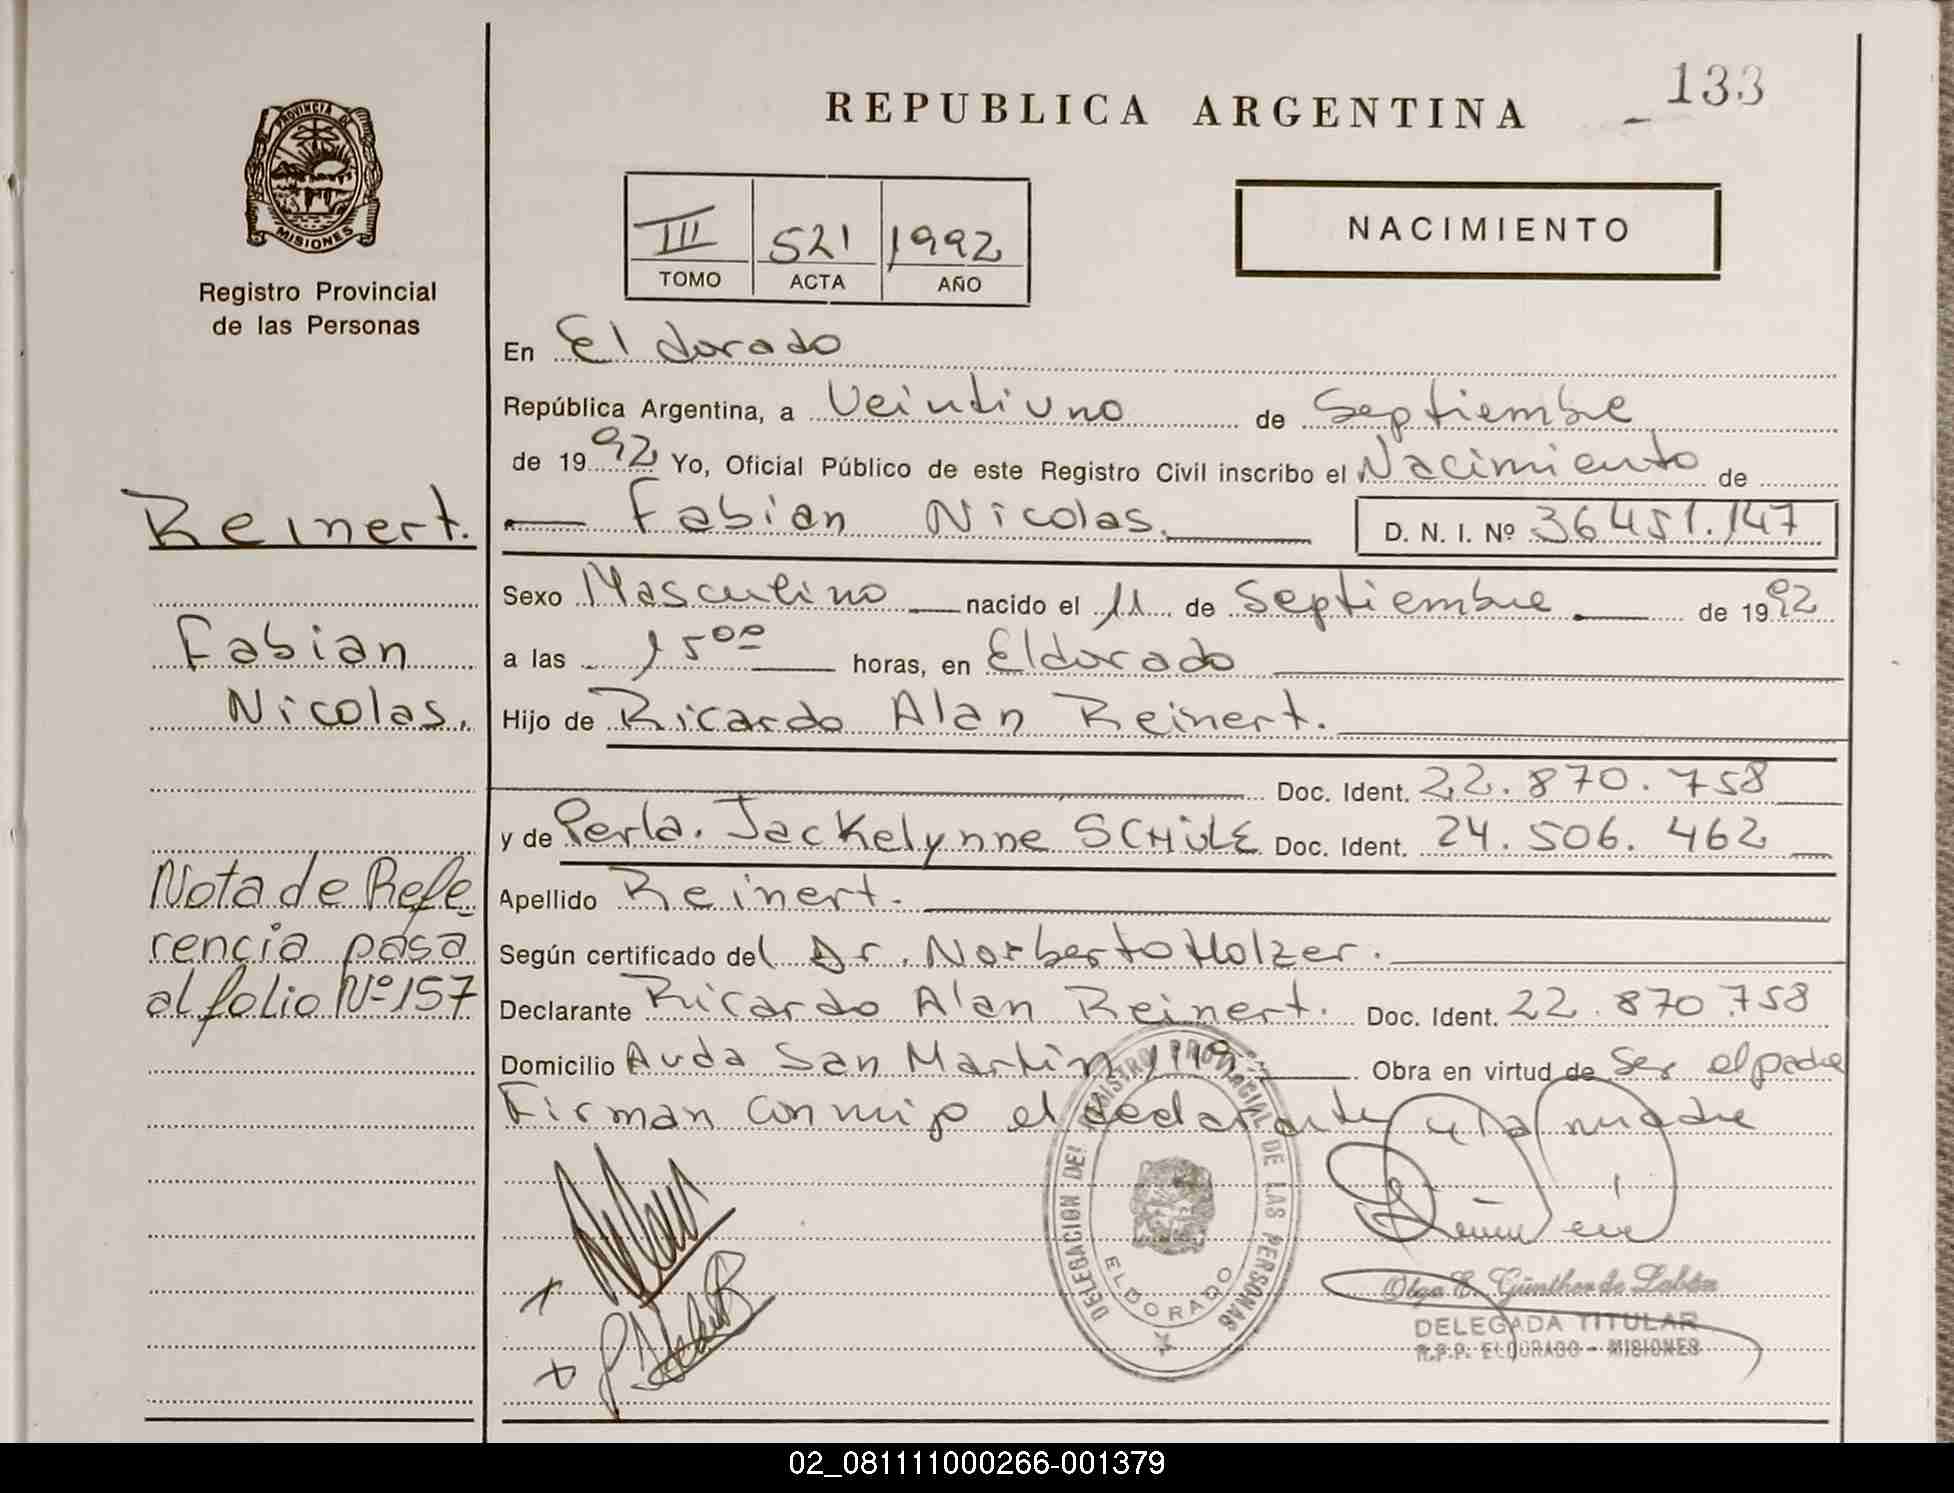 REPUBLICA ARGENTINA
133
PROVINCIA DE
MISIONES
Registro Provincial
de las Personas
III 521 1992
TOMO ACTA AÑO
NACIMIENTO
En Eldorado
República Argentina, a Veintiuno de Septiembre
de 1992 Yo, Oficial Público de este Registro Civil inscribo el Nacimiento de
Reinert.
Fabian Nicolas. D. N. I. Nº 36451.147
Sexo Masculino nacido el 11 de Septiembre de 1992
Fabian
a las 15 00 horas, en Eldorado
Nicolas.
Hijo de Ricardo Alan Reinert.
Doc. Ident. 22.870.758
y de Perla. Jackelynne SCHULE Doc. Ident. 24.506.462
Nota de Refe-
rencia pasa
al folio Nº 157
Apellido Reinert.
Según certificado del Dr. Norberto Holzer.
Declarante Ricardo Alan Reinert. Doc. Ident. 22.870.758
Domicilio Avda San Martin Obra en virtud de Ser el padre
Firman conmigo el declarante y la madre
DELEGACION DEL REGISTRO PROVINCIAL DE LAS PERSONAS
ELDORADO
Olga E. Günther de Labán
DELEGADA TITULAR
R.P.P. ELDORADO - MISIONES
02_081111000266-001379